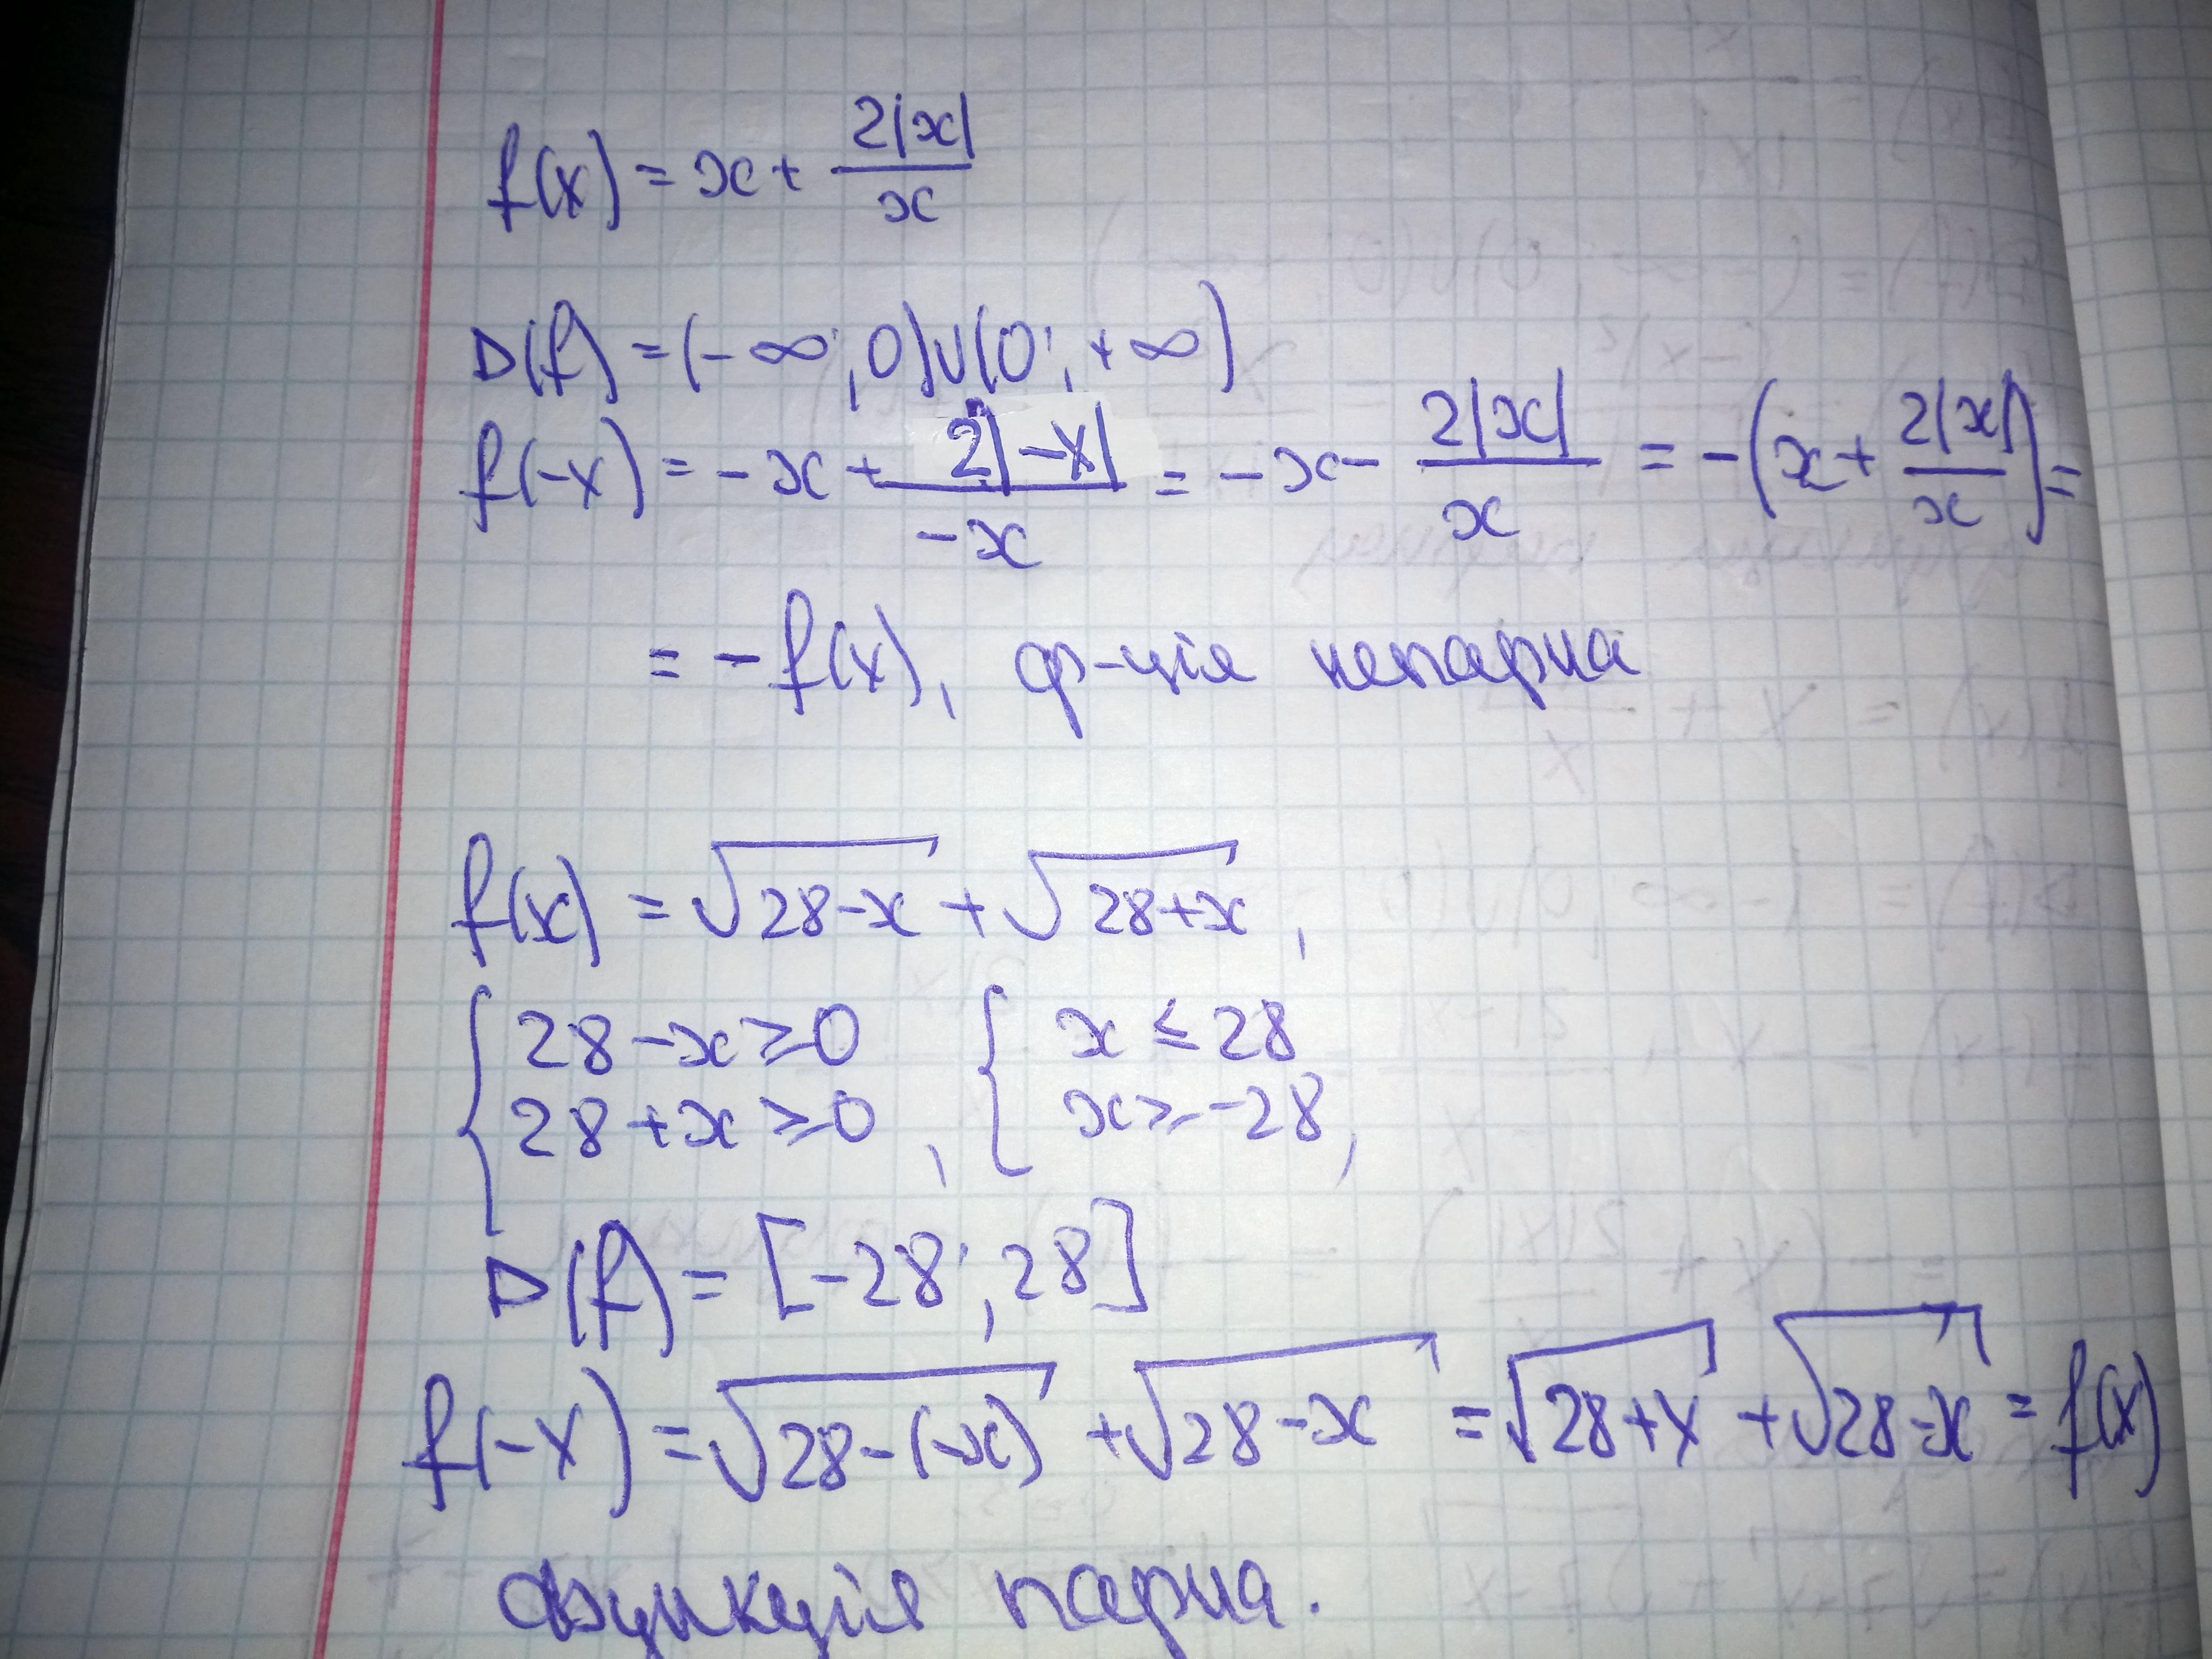 f(x) = x + 2|x| / x
D(f) = (-∞; 0)∪(0; +∞)
f(-x) = -x + 2|-x| / -x = -x - 2|x| / x = -(x + 2|x| / x) =
= -f(x), ф-ція непарна
f(x) = √(28-x) + √(28+x),
{ 28-x ≥ 0 { x ≤ 28
28+x ≥ 0, x ≥ -28,
D(f) = [-28; 28]
f(-x) = √(28-(-x)) + √(28-x) = √(28+x) + √(28-x) = f(x)
функція парна.